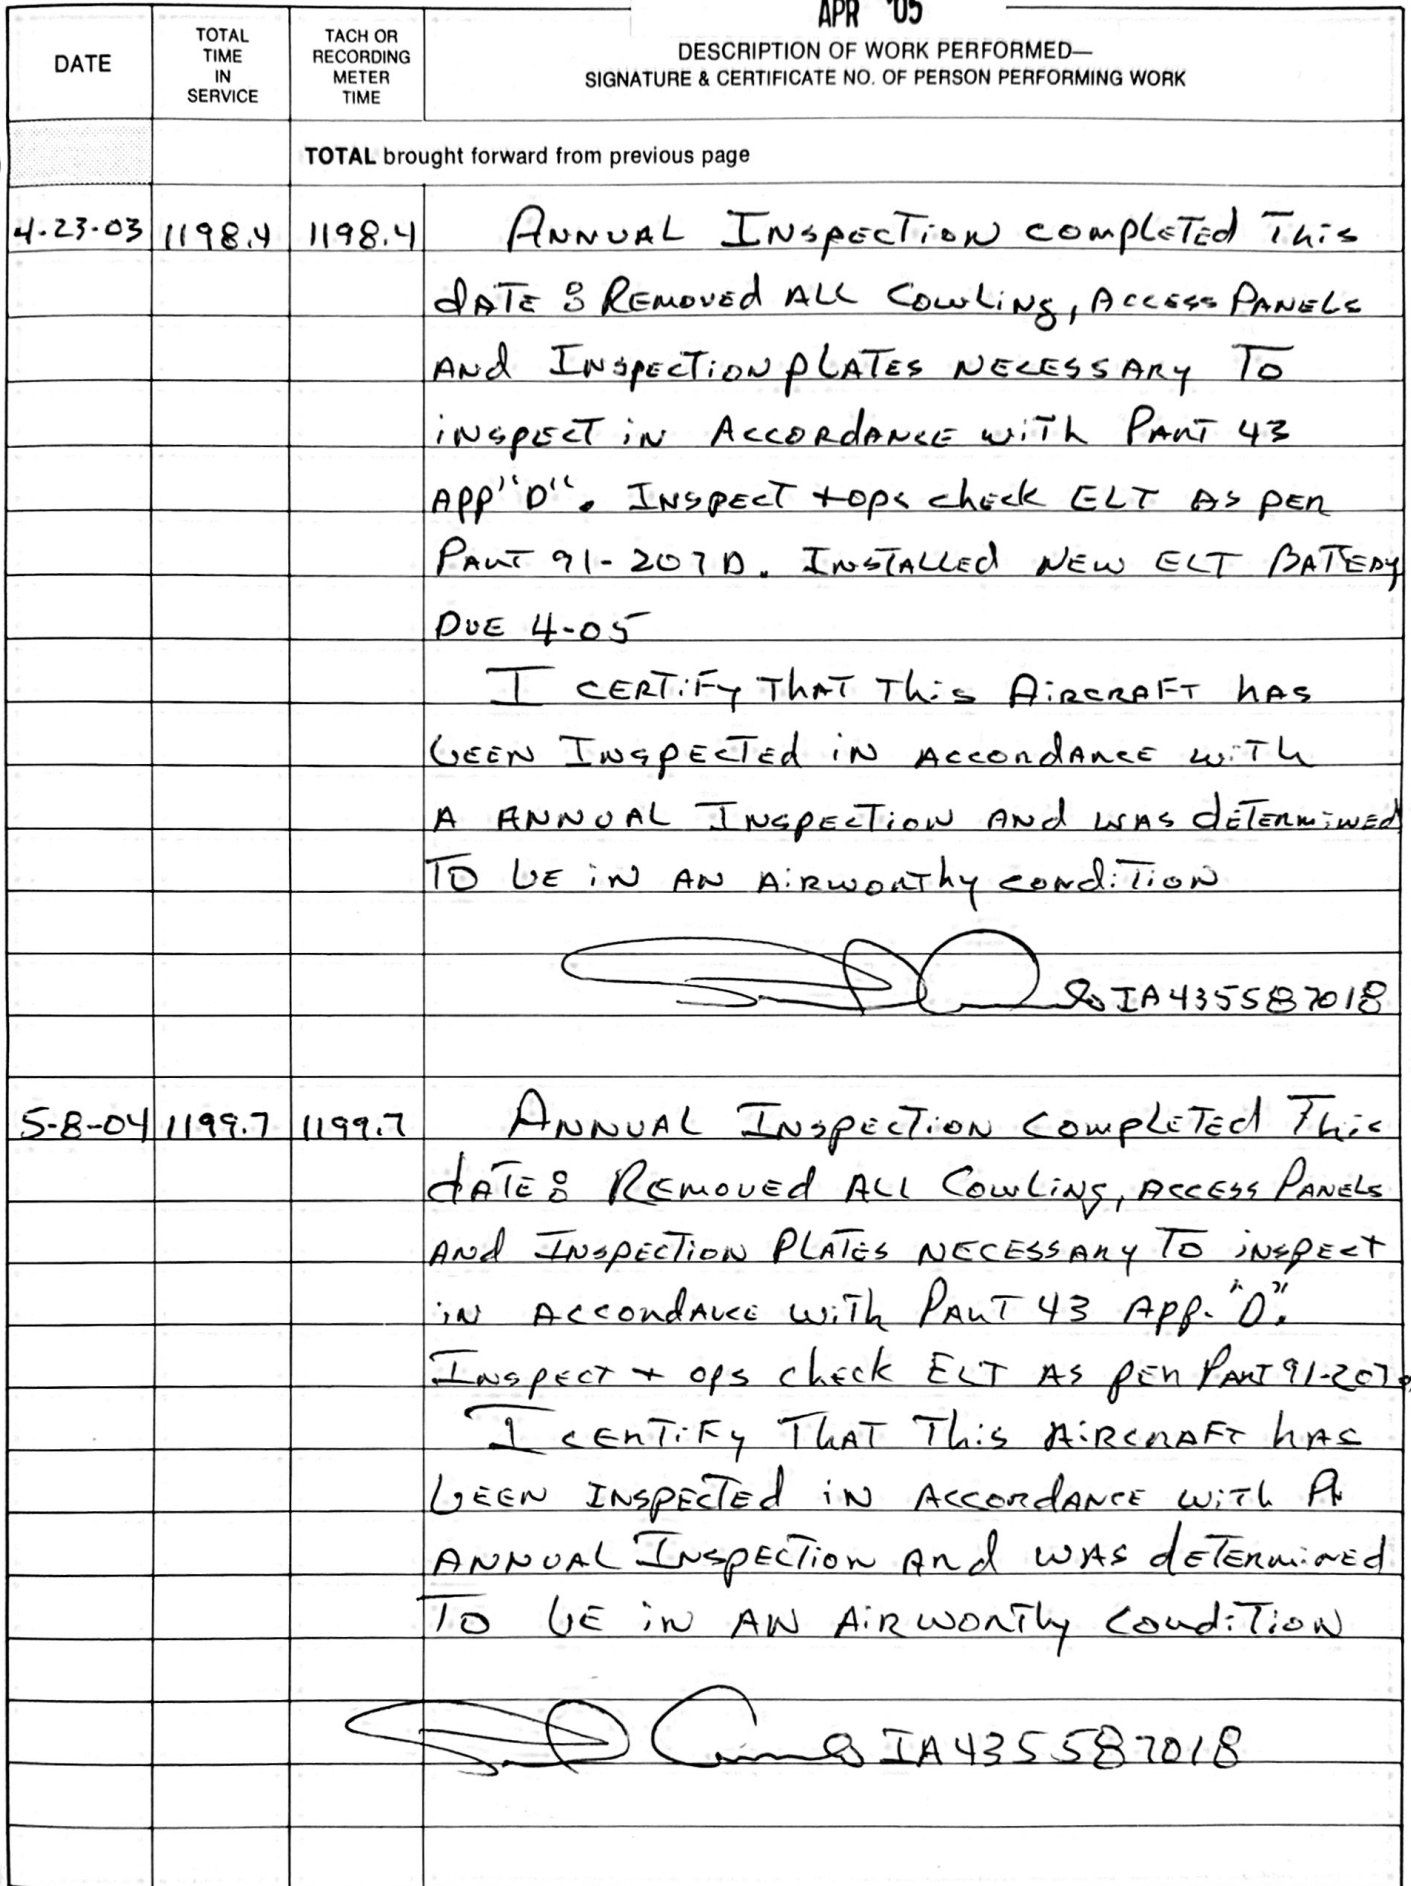 APR '05
DATE
TOTAL
TIME
IN
SERVICE
TACH OR
RECORDING
METER
TIME
DESCRIPTION OF WORK PERFORMED—
SIGNATURE & CERTIFICATE NO. OF PERSON PERFORMING WORK
TOTAL brought forward from previous page
4-23-03 1198.4 1198.4 ANNUAL INSPECTION COMPLETED THIS
DATE : REMOVED ALL COWLING, ACCESS PANELS
AND INSPECTION PLATES NECESSARY TO
INSPECT IN ACCORDANCE WITH PART 43
APP "D". INSPECT + OPS CHECK ELT AS PER
PART 91-207D. INSTALLED NEW ELT BATTERY
DUE 4-05
I CERTIFY THAT THIS AIRCRAFT HAS
BEEN INSPECTED IN ACCORDANCE WITH
A ANNUAL INSPECTION AND WAS DETERMINED
TO BE IN AN AIRWORTHY CONDITION
IA435587018
5-8-04 1199.7 1199.7 ANNUAL INSPECTION COMPLETED THIS
DATE : REMOVED ALL COWLING, ACCESS PANELS
AND INSPECTION PLATES NECESSARY TO INSPECT
IN ACCORDANCE WITH PART 43 APP. "D".
INSPECT + OPS CHECK ELT AS PER PART 91-207
I CERTIFY THAT THIS AIRCRAFT HAS
BEEN INSPECTED IN ACCORDANCE WITH A
ANNUAL INSPECTION AND WAS DETERMINED
TO BE IN AN AIRWORTHY CONDITION
IA435587018